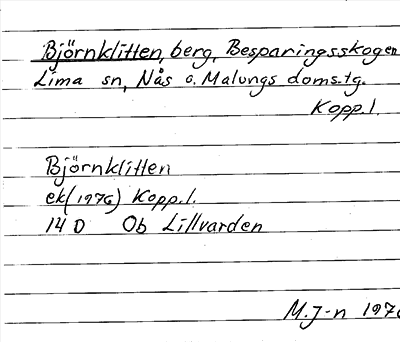 Björnklitten, berg, Besparingsskogen
Lima sn, Nås o. Malungs doms.tg.
Kopp.l.
Björnklitten
ek (1976) Kopp.l.
14 D Ob Lillvarden
M.J-n 1976